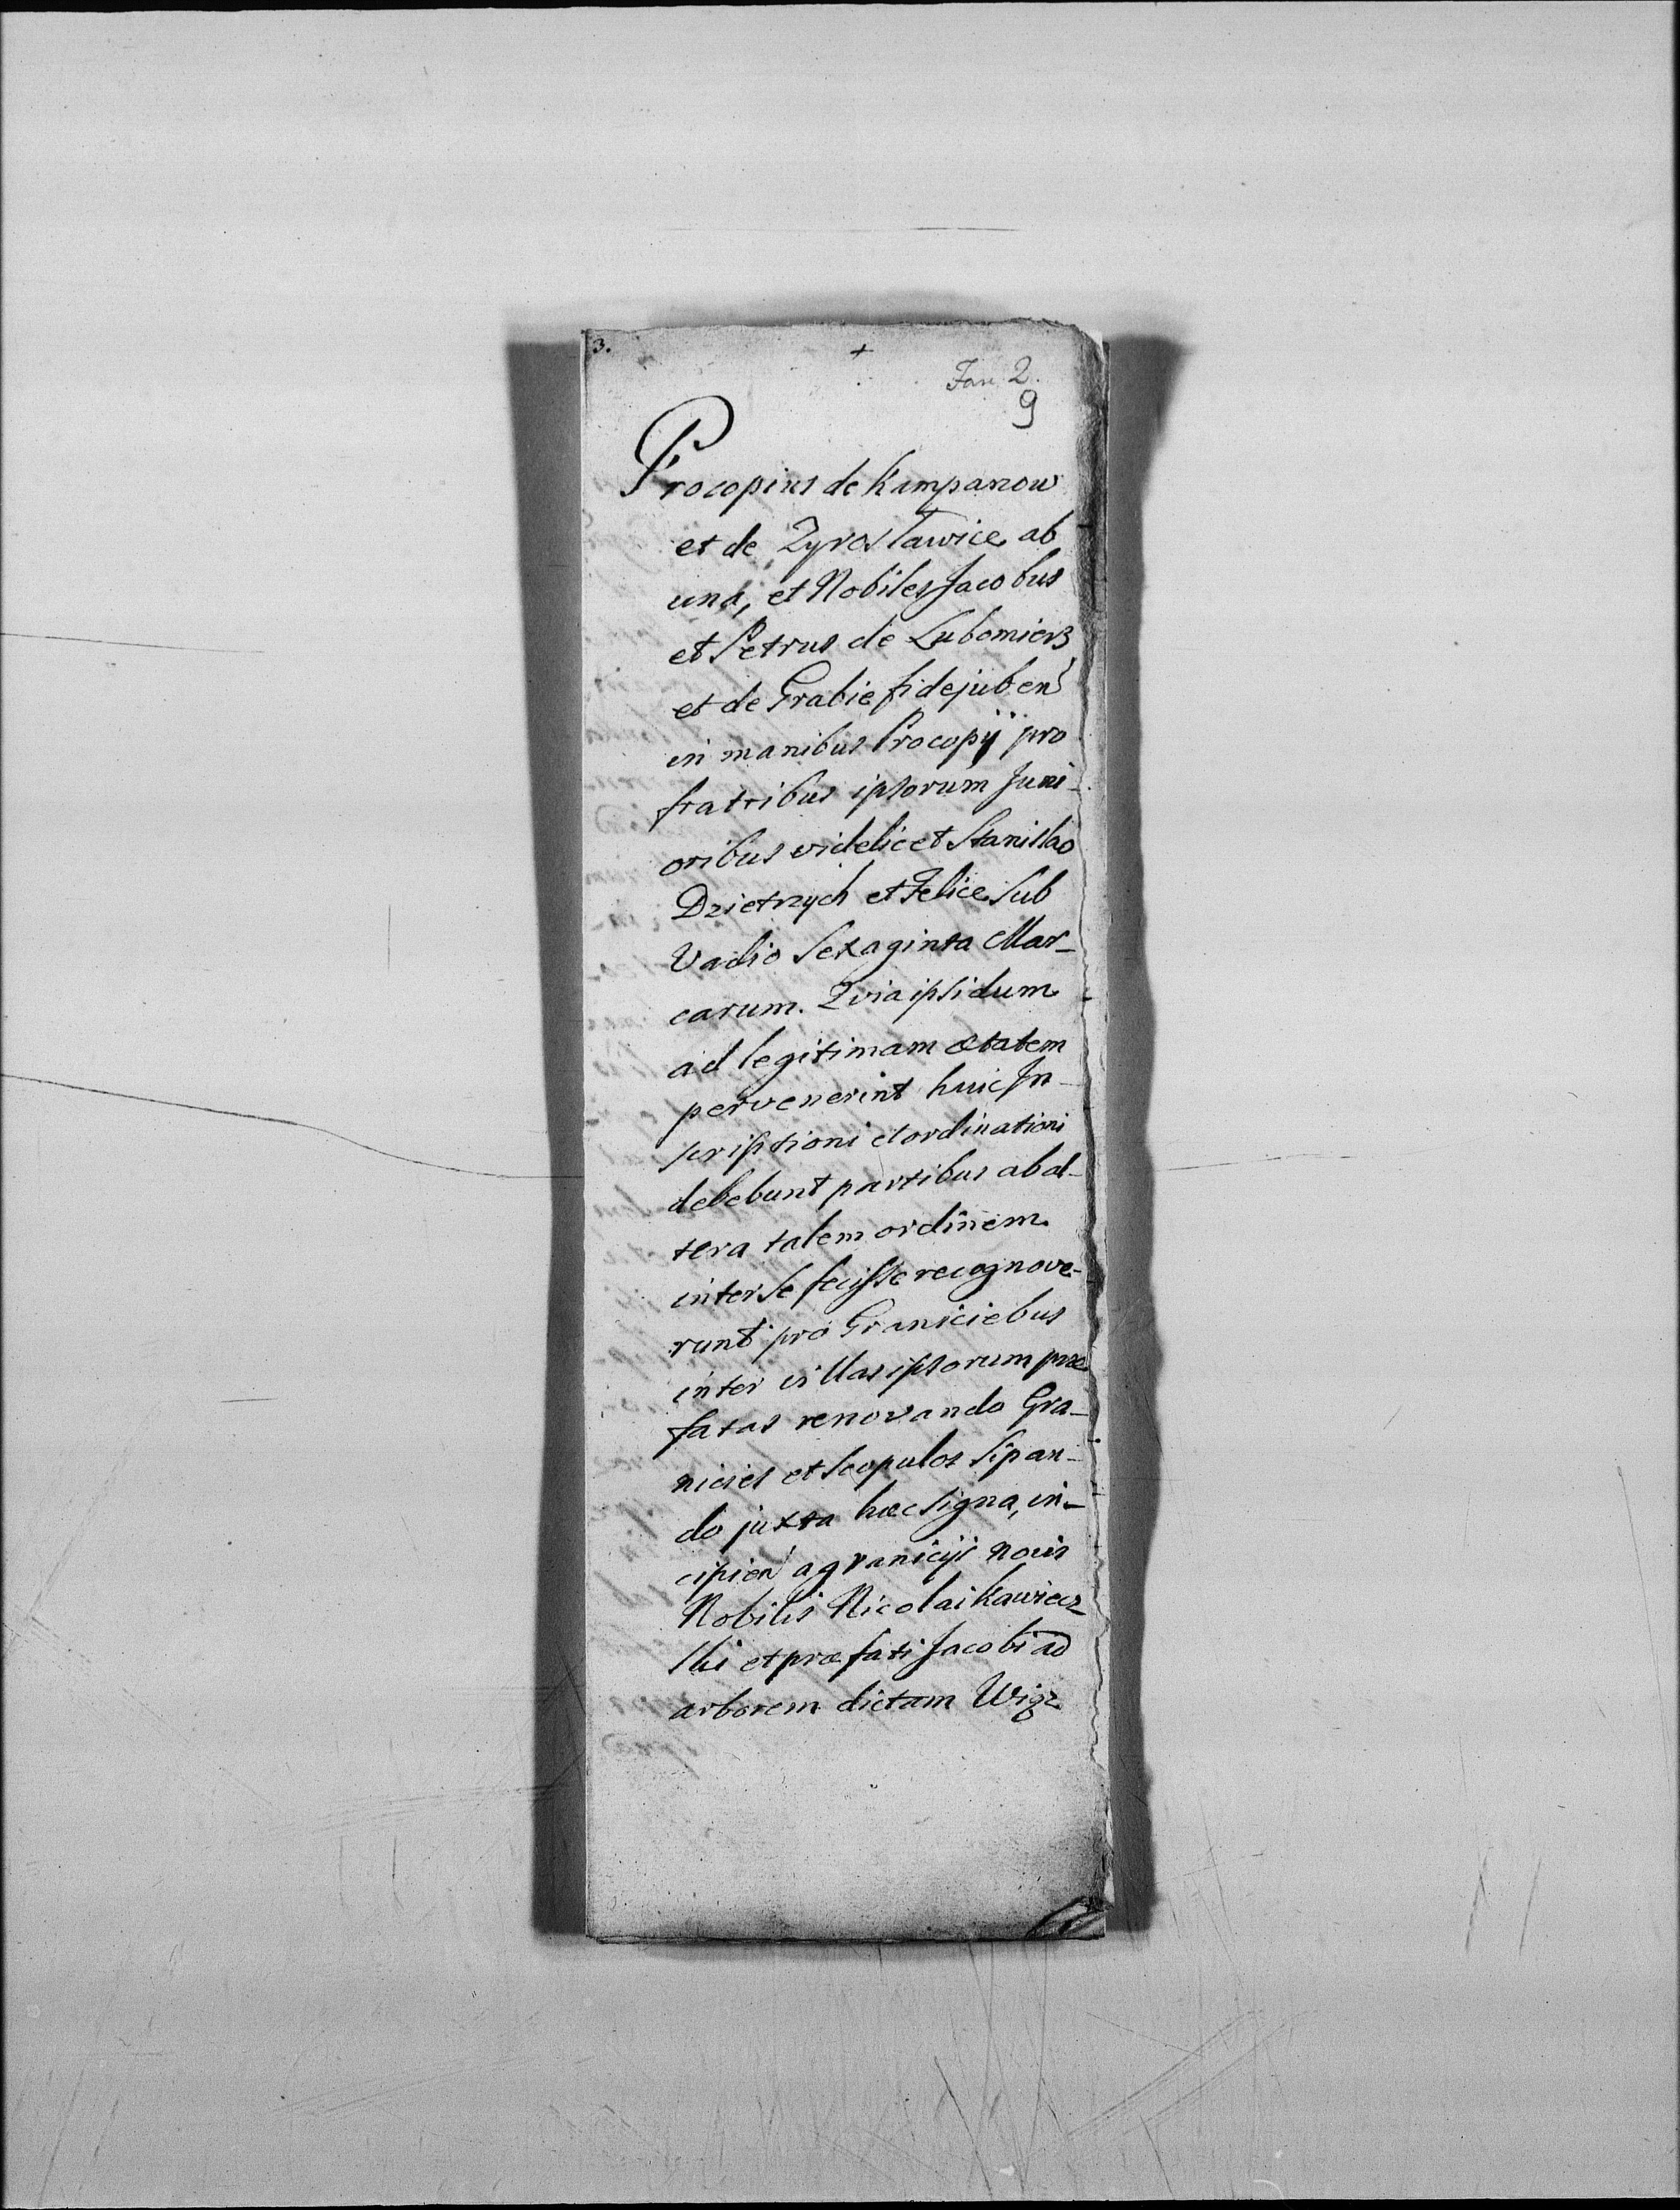 3.
+
Fasc 2.
9
Procopius de Kempanow
et de Zyrosławice ab
una, et Nobiles Jacobus
et Petrus de Lubomierz
et de Grabie fidejuben
in manibus Procopÿ pro
fratribus ipsorum Juni-
oribus videlicet Stanislao
Dzietrzych et Felice Sub
Vadio Sexaginta Mar-
carum. Qvia ipsi dum
ad legitimam ætatem
pervenerint huic In-
scriptioni et ordinationi
debebunt partibus ab al-
tera talem ordinem
inter Se fecisse recognove-
runt pro Graniciebus
inter villas ipsorum præ
fatas renovando Gra-
nicies et Scopulos Sipan-
do juxta hæc Signa, in-
cipien a granicijs novis
Nobilis Nicolai Kawiecz-
ski et præfati Jacobi ad
arborem dictam Wiąz